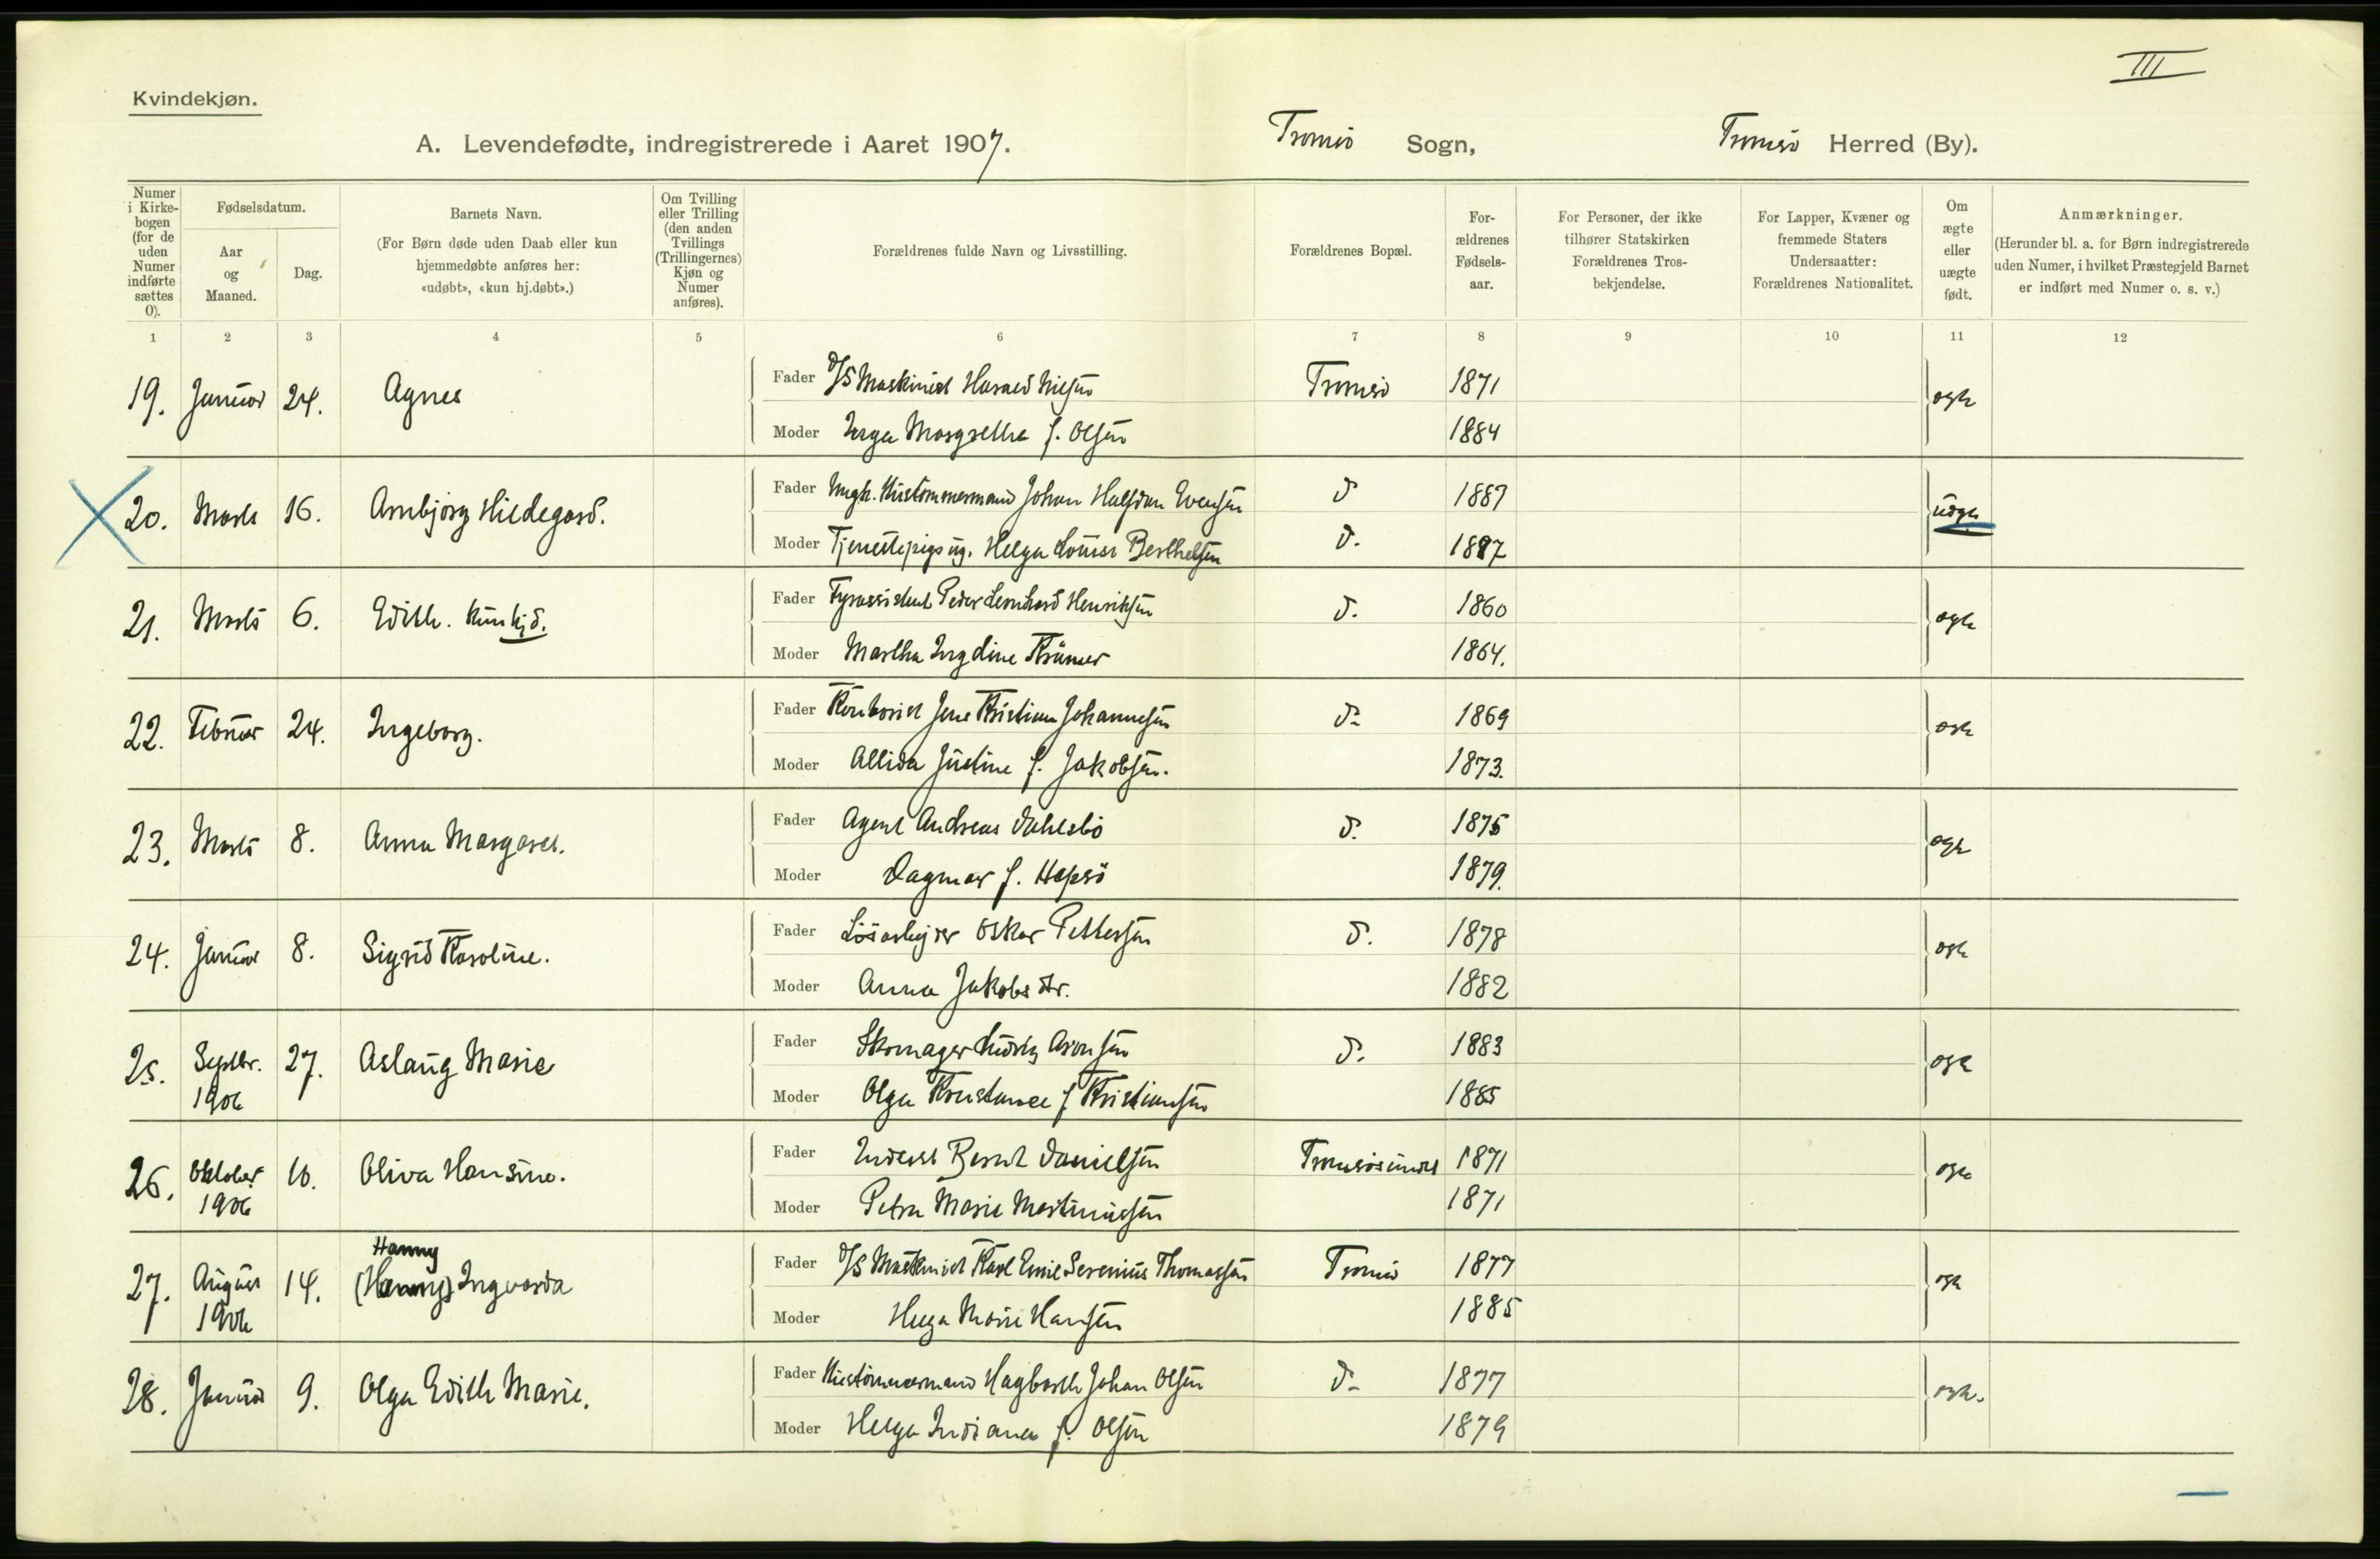 III
Kvindekjøn.
A. Levendefødte, indregistrerede i Aaret 1907. Tromsö Sogn, Tromsö Herred (By).
Numer i Kirkebogen (for de uden Numer indførte sættes 0).
Fødselsdatum.
Aar og Maaned.
Dag.
Barnets Navn.
(For Børn døde uden Daab eller kun hjemmedøbte anføres her: «udøbt», «kun hj.døbt».)
Om Tvilling eller Trilling (den anden Tvillings (Trillingernes) Kjøn og Numer anføres).
Forældrenes fulde Navn og Livsstilling.
Forældrenes Bopæl.
For-ældrenes Fødsels-aar.
For Personer, der ikke tilhører Statskirken Forældrenes Tros-bekjendelse.
For Lapper, Kvæner og fremmede Staters Undersaatter: Forældrenes Nationalitet.
Om ægte eller uægte født.
Anmærkninger.
(Herunder bl. a. for Børn indregistrerede uden Numer, i hvilket Præstegjeld Barnet er indført med Numer o. s. v.)
1 2 3 4 5 6 7 8 9 10 11 12
19. Januar 24. Agnes Fader D/S Maskinist Harald Nilsen Tromsö 1871 ægte
Moder Inga Margrethe f. Olsen 1884
20. Marts 16. Arnbjörg Hildegard. Fader Ungk. Hustömmermand Johan Halfdan Evensen d 1887 uægte
Moder Tjenestepige ug. Helga Louise Berthelsen d. 1887
21. Marts 6. Edith. kun hj.d. Fader Fyrassistent Peder Leonhard Henriksen d. 1860 ægte
Moder Martha Ingdine Krämer 1864.
22. Februar 24. Ingeborg. Fader Kontorist Jens Kristian Johannesen d. 1869 ægte
Moder Allida Justine f. Jakobsen. 1873.
23. Marts 8. Anna Margaret. Fader Agent Andreas Dahlsbö d. 1875 ægte
Moder Dagmar f. Hopsö 1879.
24. Januar 8. Sigrid Karoline. Fader Lösarbejder Oskar Pettersen d. 1878 ægte
Moder Anna Jakobsdtr. 1882
25. Septbr. 1906 27. Aslaug Marie Fader Skomager Ludvig Aronsen d. 1883 ægte
Moder Olga Konstance f. Kristiansen 1885
26. Oktober 1906 10. Oliva Hansine. Fader Inderst Bernt Danielsen Tromsösundet 1871 ægte
Moder Petra Marie Martinussen 1871
Hanny
27. August 1906 14. (Hanny) Ingvarda Fader D/S Maskinist Karl Emil Severinus Thomassen Tromsö 1877 ægte
Moder Helga Marie Hansen 1885
28. Januar 9. Olga Edith Marie. Fader Hustömmermand Hagbarth Johan Olsen d. 1877 ægte.
Moder Helga Indiana f. Olsen 1879